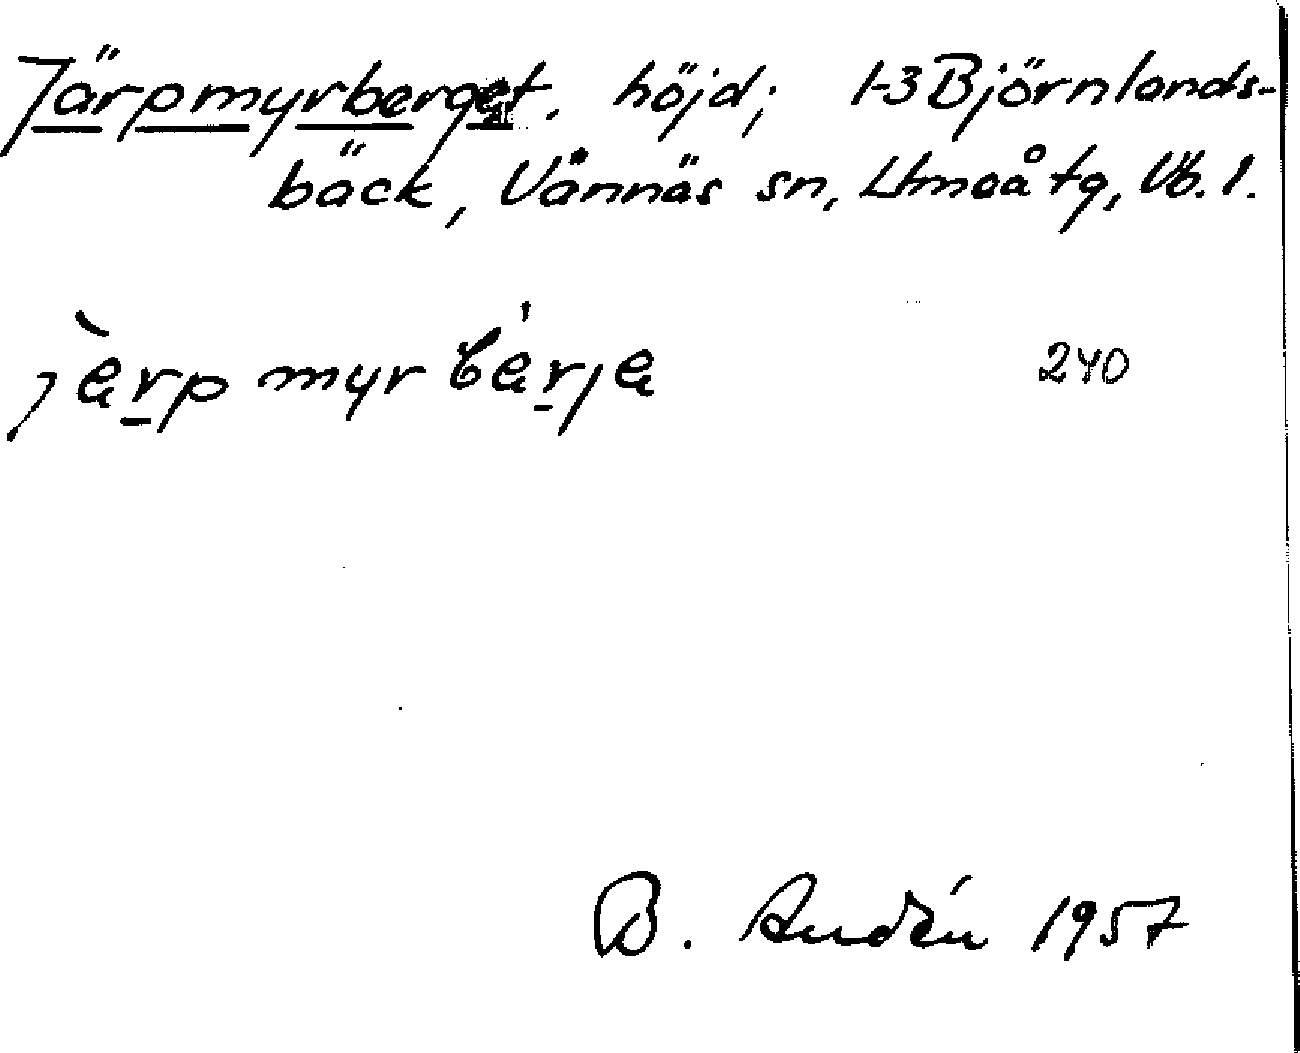 Järpmyrberget, höjd; 1-3 Björnlands-
bäck, Vännäs sn, Umeå tg, Vb. l.
jàrp myr bárja
240
B. Audén 1957